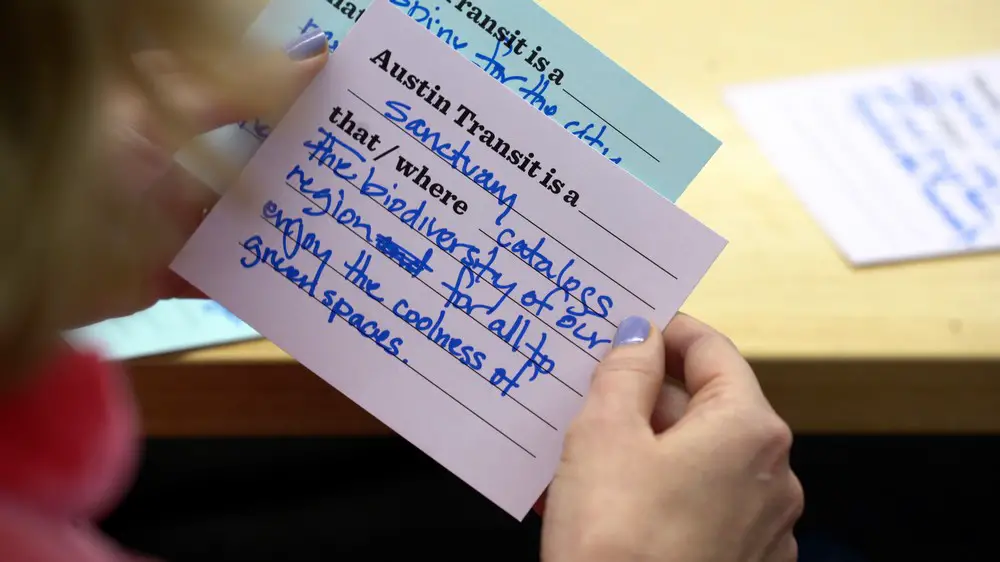 Transit is a
for the city
Austin Transit is a
Sanctuary
that / where catalogs
The biodiversity of our
region for all to
enjoy the coolness of
green spaces.